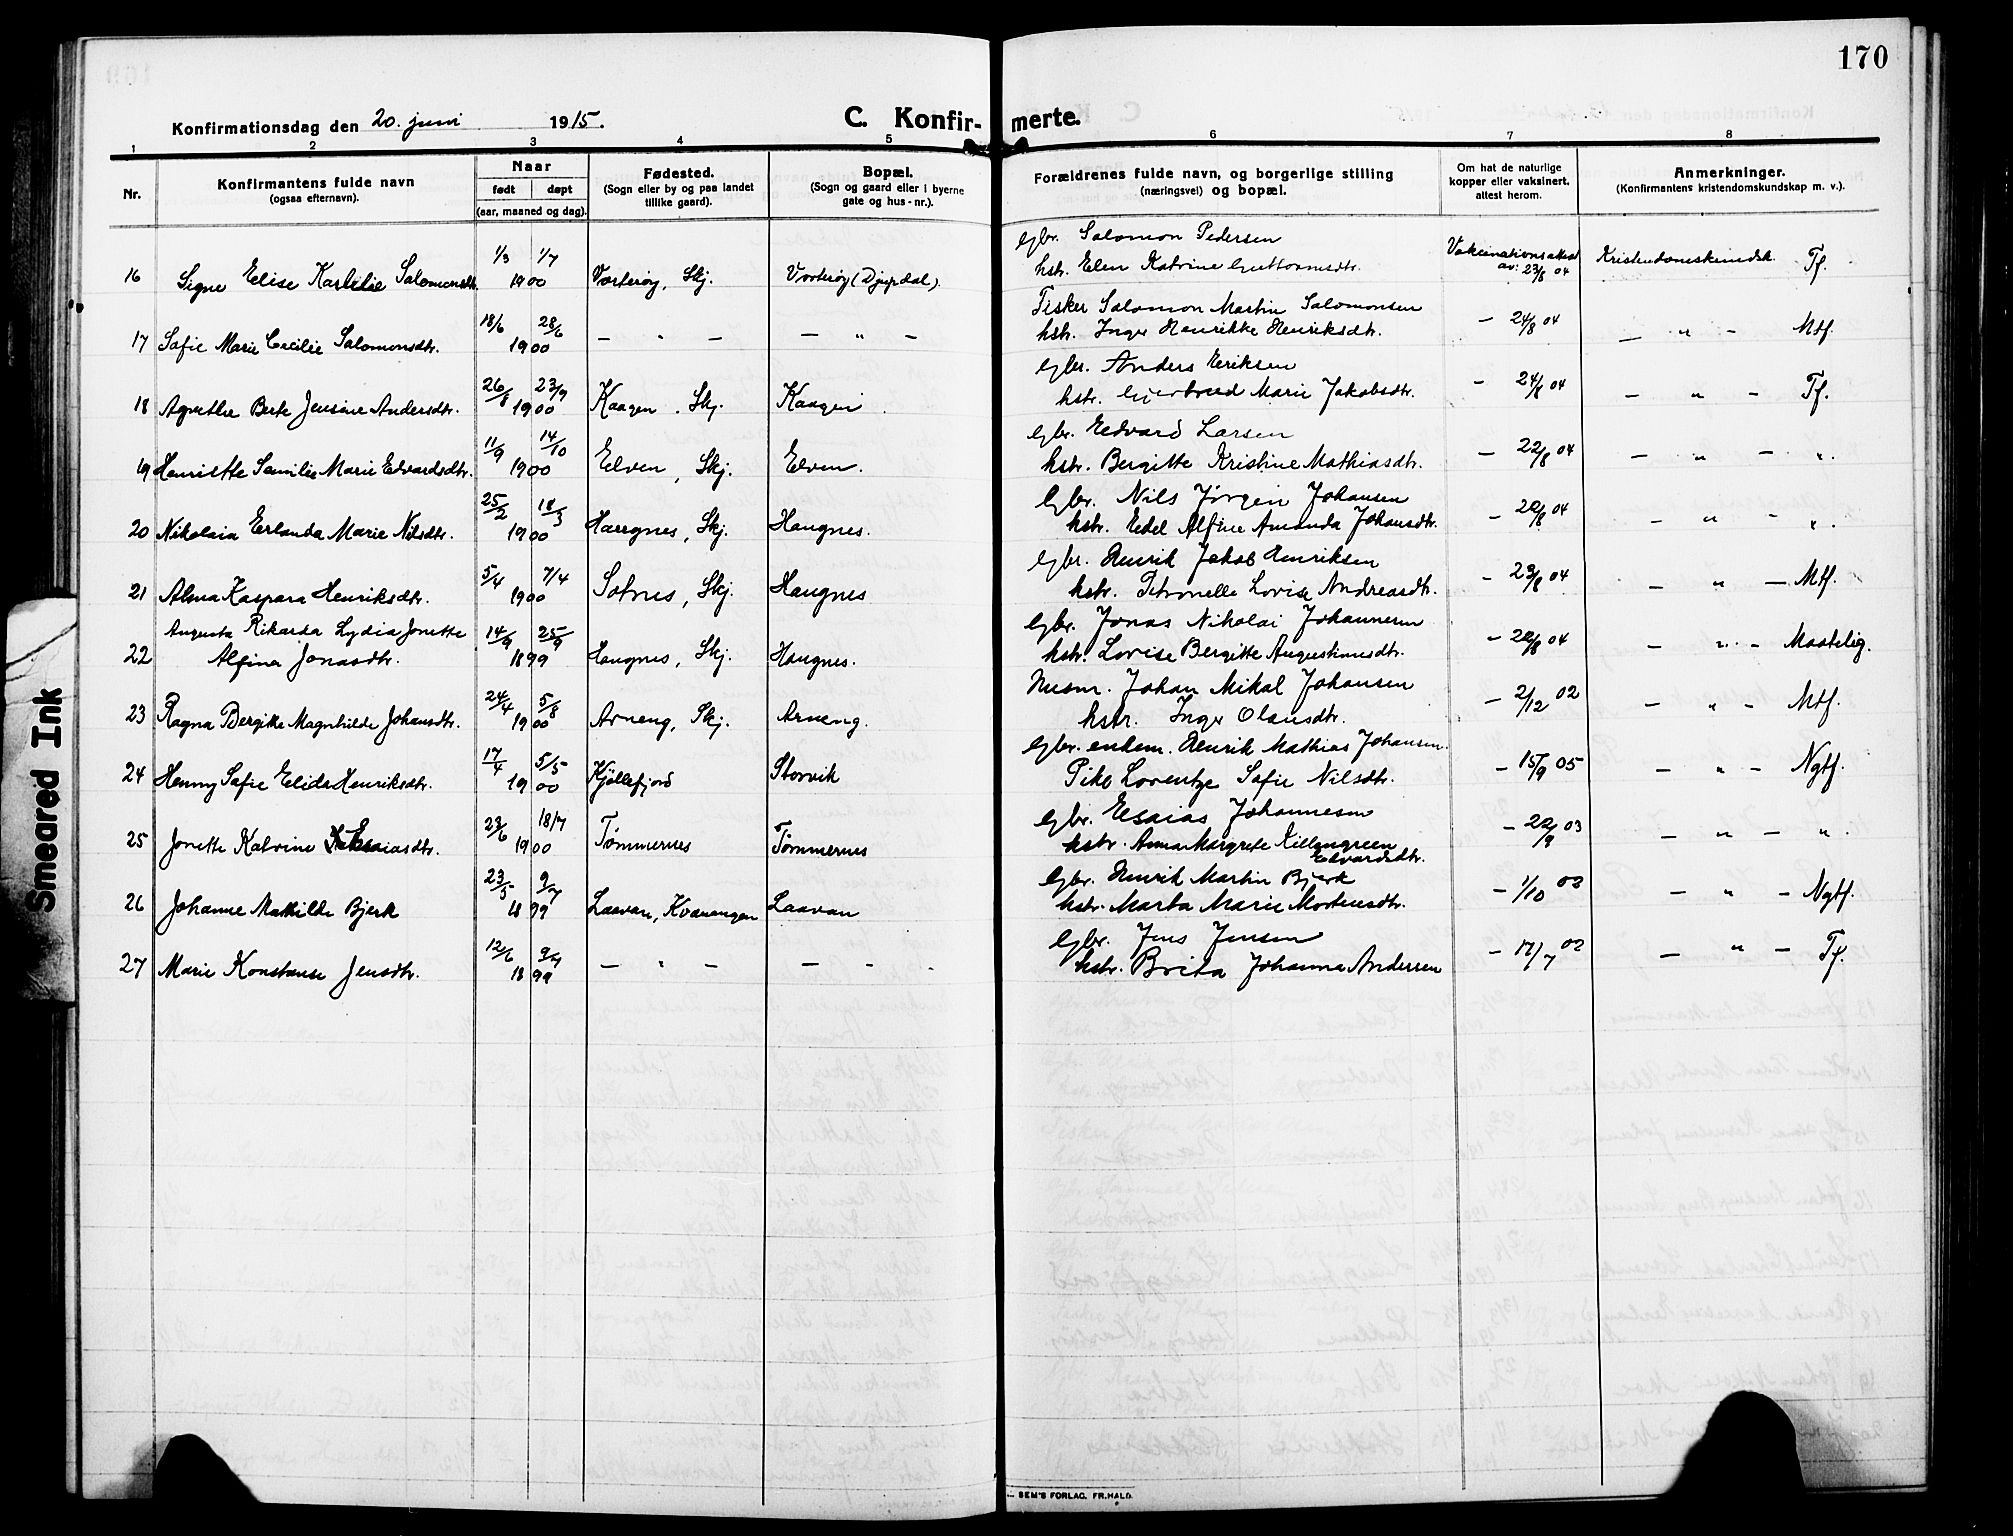 170
Konfirmationsdag den 20. juni 1915.
C. Konfirmerte.
1 2 3 4 5 6 7 8
Nr.
Konfirmantens fulde navn
(ogsaa efternavn).
Naar
født døpt
(aar, maaned og dag).
Fødested.
(Sogn eller by og paa landet
tillike gaard).
Bopæl.
(Sogn og gaard eller i byerne
gate og hus-nr.).
Forældrenes fulde navn, og borgerlige stilling
(næringsvei) og bopæl.
Om hat de naturlige
kopper eller vaksinert,
attest herom.
Anmerkninger.
(Konfirmantens kristendomskundskap m. v.).
gbr. Salomon Pedersen
16 Signe Elise 1/3 1/7 1900 Vorterøy, Skj. Vorterøy (Djupdal). hstr. Elen Katrine Guttormsdtr. Vakcinationsattest av: 23/8 04 Kristendomskundsk Tf.
Fisker Salomon Martin Salomonsen
17 Sofie Marie Cecilie Salomonsdtr. 18/6 28/6 1900 — " — — " — hstr. Inger Henrikke Henriksdtr. — 24/8 04 — " — Mtf.
gbr. Anders Eriksen
18 Agnethe Berte Jensine Andersdtr. 26/8 23/9 1900 Kaagen, Skj. Kaagen hstr. Gjertrud Marie Jakobsdtr. — 24/8 04 — " — Tf.
gbr. Edvard Larsen
19 Henriette Samilie Marie Edvardsdtr. 11/9 14/10 1900 Elven, Skj. Elven. hstr. Bergitte Kristine Mathiasdtr. — 22/8 04 — " — ".
gbr. Nils Jørgen Johansen
20 Nikolaia Erlanda Marie Nilsdtr. 25/2 18/3 1900 Haugnes, Skj. Haugnes. hstr. Edel Alfine Amanda Johansdtr. — 22/8 04 — " — ".
gbr. Henrik Jakob Henriksen
21 Alma Kaspara Henriksdtr. 5/4 7/4 1900 Sotnes, Skj. Haugnes hstr. Petronelle Lovise Andreasdtr. — 23/8 04 — " — Mtf.
Augusta Rikarda Lydia Jonette gbr. Jonas Nikolai Johannesen
22 Alfina Jonasdtr. 14/9 25/9 1899 Haugnes, Skj. Haugnes. hstr. Lovise Bergitte Augustinusdtr. — 22/8 04 — " — Maatelig.
Husm. Johan Mikal Johansen
23 Ragna Bergitte Magnhilde Johansdtr. 24/4 5/8 1900 Arneng, Skj. Arneng. hstr. Inger Olausdtr. — 2/12 02 — " — Mtf.
gbr. enkem. Henrik Mathias Johansen
24 Henny Sofie Elida Henriksdtr. 17/4 5/5 1900 Kjøllefjord Storvik Pike Lorentze Sofie Nilsdtr. — 15/9 05 — " — Ngtf.
gbr. Esaias Johannesen
25 Jonette Katrine Esaiasdtr. 23/6 18/7 1900 Tømmernes Tømmernes hstr. Anna Margrete Killengreen Edvardsdtr. — 22/9 03 — " — ".
gbr. Henrik Martin Bjerk
26 Johanne Mathilde Bjerk 23/5 9/7 1899 Laavan, Kvænangen Laavan hstr. Marta Marie Mortensdtr. — 1/10 02 — " — Ngtf.
gbr. Jens Jensen
27 Marie Konstanse Jensdtr. 12/6 9/7 1899 — " — — — . hstr. Brita Johanna Andersen — 17/7 02 — " — Tf.
Smeared Ink
SEM'S FORLAG, FR.HALD.